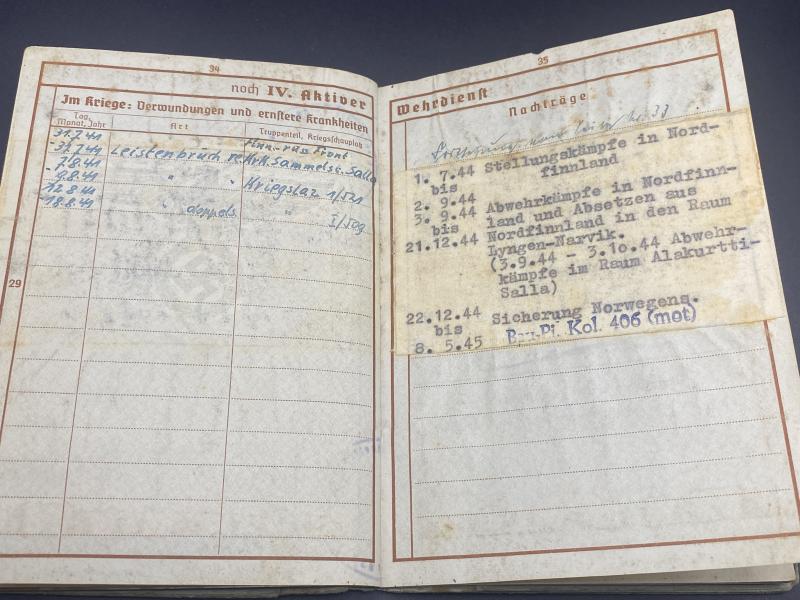 34
noch IV. Aktiver
Im Kriege: Verwundungen und ernstere Krankheiten
Tag, Monat, Jahr
Art
Truppenteil, Kriegsschauplatz
31.7.41
Finn.-russ Front
-31.7.41 Leistenbruch re. Krk. Sammelst. Salla
2.8.41
-9.8.41 " " Kriegslaz. 1/521
12.8.41
-18.8.41 " doppels. " 1/509
29
35
Wehrdienst
Nachträge
Fortsetzung von Seite 33
1. 7.44 Stellungskämpfe in Nord-
bis finnland
2. 9.44
3. 9.44 Abwehrkämpfe in Nordfinn-
bis land und Absetzen aus
21.12.44 Nordfinnland in den Raum
Lyngen-Narvik.
(3.9.44 - 3.10.44 Abwehr-
kämpfe im Raum Alakurtti-
Salla)
22.12.44 Sicherung Norwegens.
bis
8. 5.45 Bau-Pi. Kol. 406 (mot)